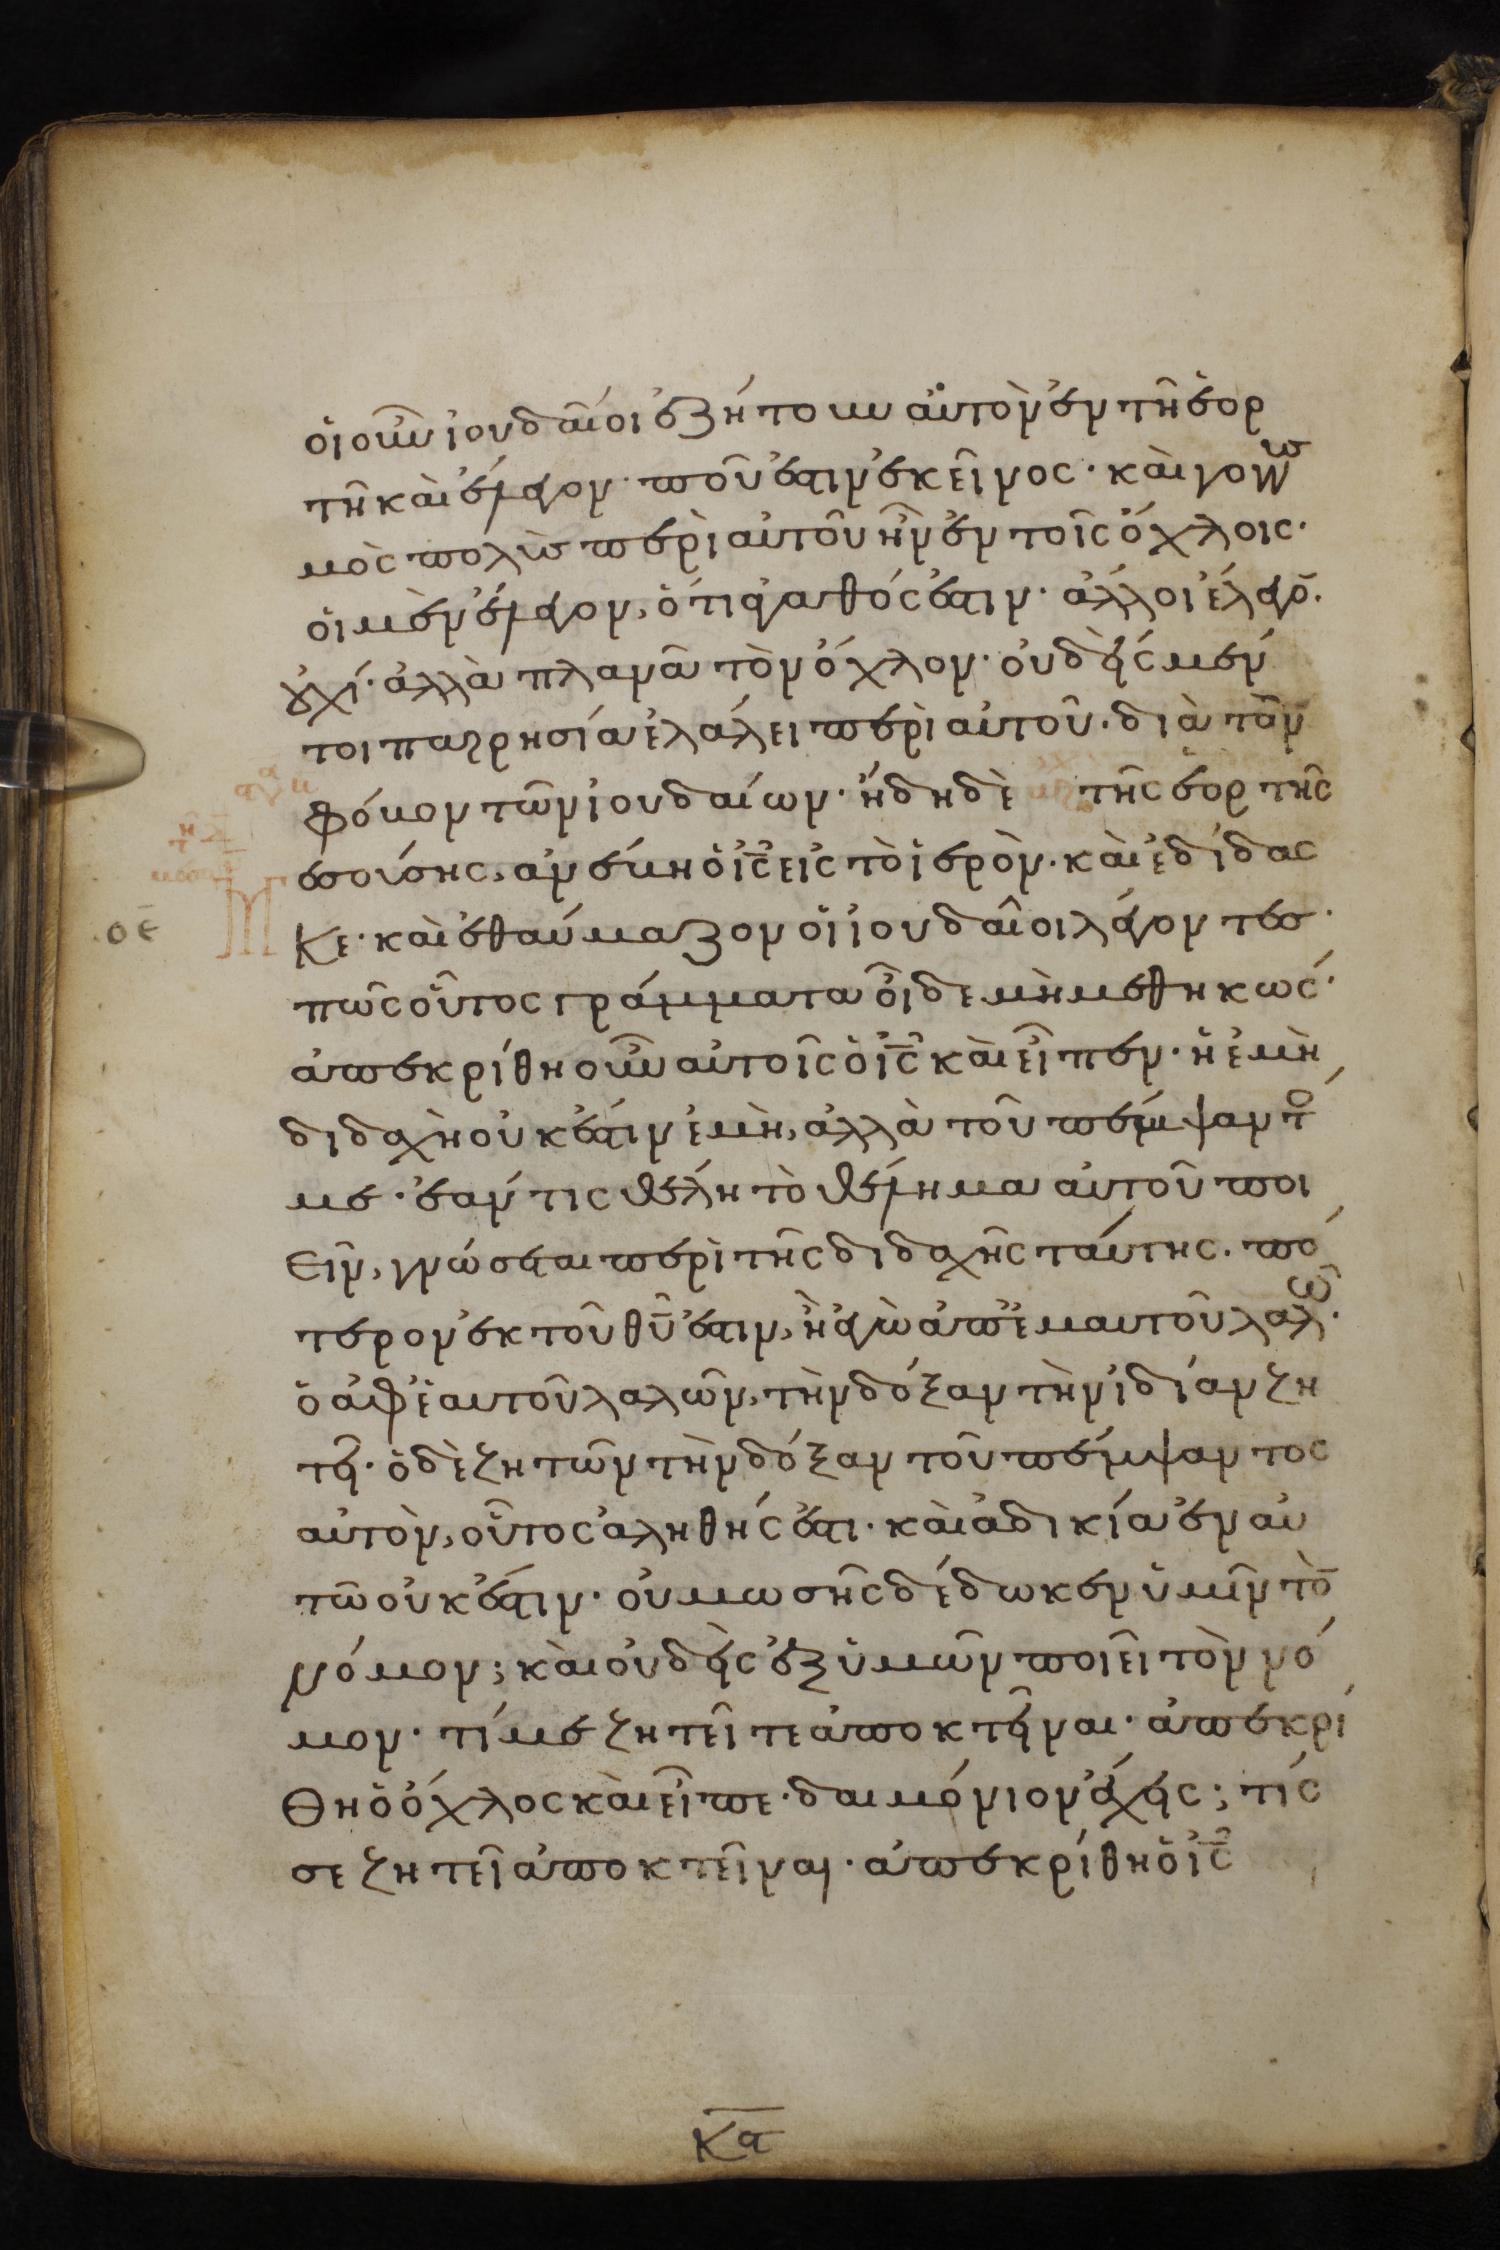 ὁι οὖν ἰουδαῖοι ἐζήτουν αὐτὸν ἐν τῆ ἑορ
τῆ καὶ ἔλεγον· ποῦ ἐστιν ἐκεῖνος· καὶ γογγυσ
μὸς πολὺσ περὶ αὐτοῦ ἦν ἐν τοῖς ὄχλοις·
ὁι μὲν ἔλεγον, ὅτι ἀγαθός ἐστιν· ἄλλοι ἔλεγο̄.
οὐχί· ἀλλὰ πλανᾶ τὸν ὄχλον· οὐδεὶς μέν
τοι παρρησία ἐλάλει περὶ αὐτοῦ· διὰ τὸν
φόβον τῶν ἰουδαίων· ἤδη δὲ τῆς ἑορτῆς
μεσούσης, ἀνέβη ὁ ἰς̄ εἰς τὸ ἱερὸν· καὶ ἐδίδασ
κε· καὶ ἐθαύμαζον ὁι ἰουδαῖοι λέγοντεσ·
πῶς οὗτος γράμματα οἶδε μὴ μεθηκώς·
ἀπεκρίθη οὖν αὐτοῖς ὁ ἰς̄ καὶ εἶπεν· ἡ ἐμὴ
διδαχὴ οὐκ ἔστιν ἐμὴ, ἀλλὰ τοῦ πέμψαντό
με· ἐάν τις θέλη τὸ θέλημα αὐτοῦ ποι
εῖν, γνώσεται περὶ τῆς διδαχῆς ταύτης· πό
τερον ἐκ τοῦ θῡ ἐστιν, ἢ ἐγὼ ἀπ' ἐμαυτοῦ λαλῶ·
ὁ ἀφ' ἑαυτοῦ λαλῶν, τὴν δόξαν τὴν ἰδίαν ζη
τεῖ· ὁ δὲ ζητῶν τὴν δόξαν τοῦ πέμψαντος
αὐτὸν, οὗτος ἀληθής ἐστι· καὶ ἀδικία ἐν αὐ
τῶ οὐκ ἔστιν· οὐ μωσῆς δέδωκεν ὑμῖν τὸ̄
νόμον; καὶ οὐδεὶς ἐξ ὑμῶν ποιεῖ τὸν νό
μον· τί με ζητεῖτε ἀποκτεῖναι· ἀπεκρί
θη ὁ ὄχλος καὶ εἶπε· δαιμόνιον ἔχεις; τίς
σε ζητεῖ ἀποκτεῖναι· ἀπεκρίθη ὁ ἰς̄
ο̄ε̄
κ̄ᾱ